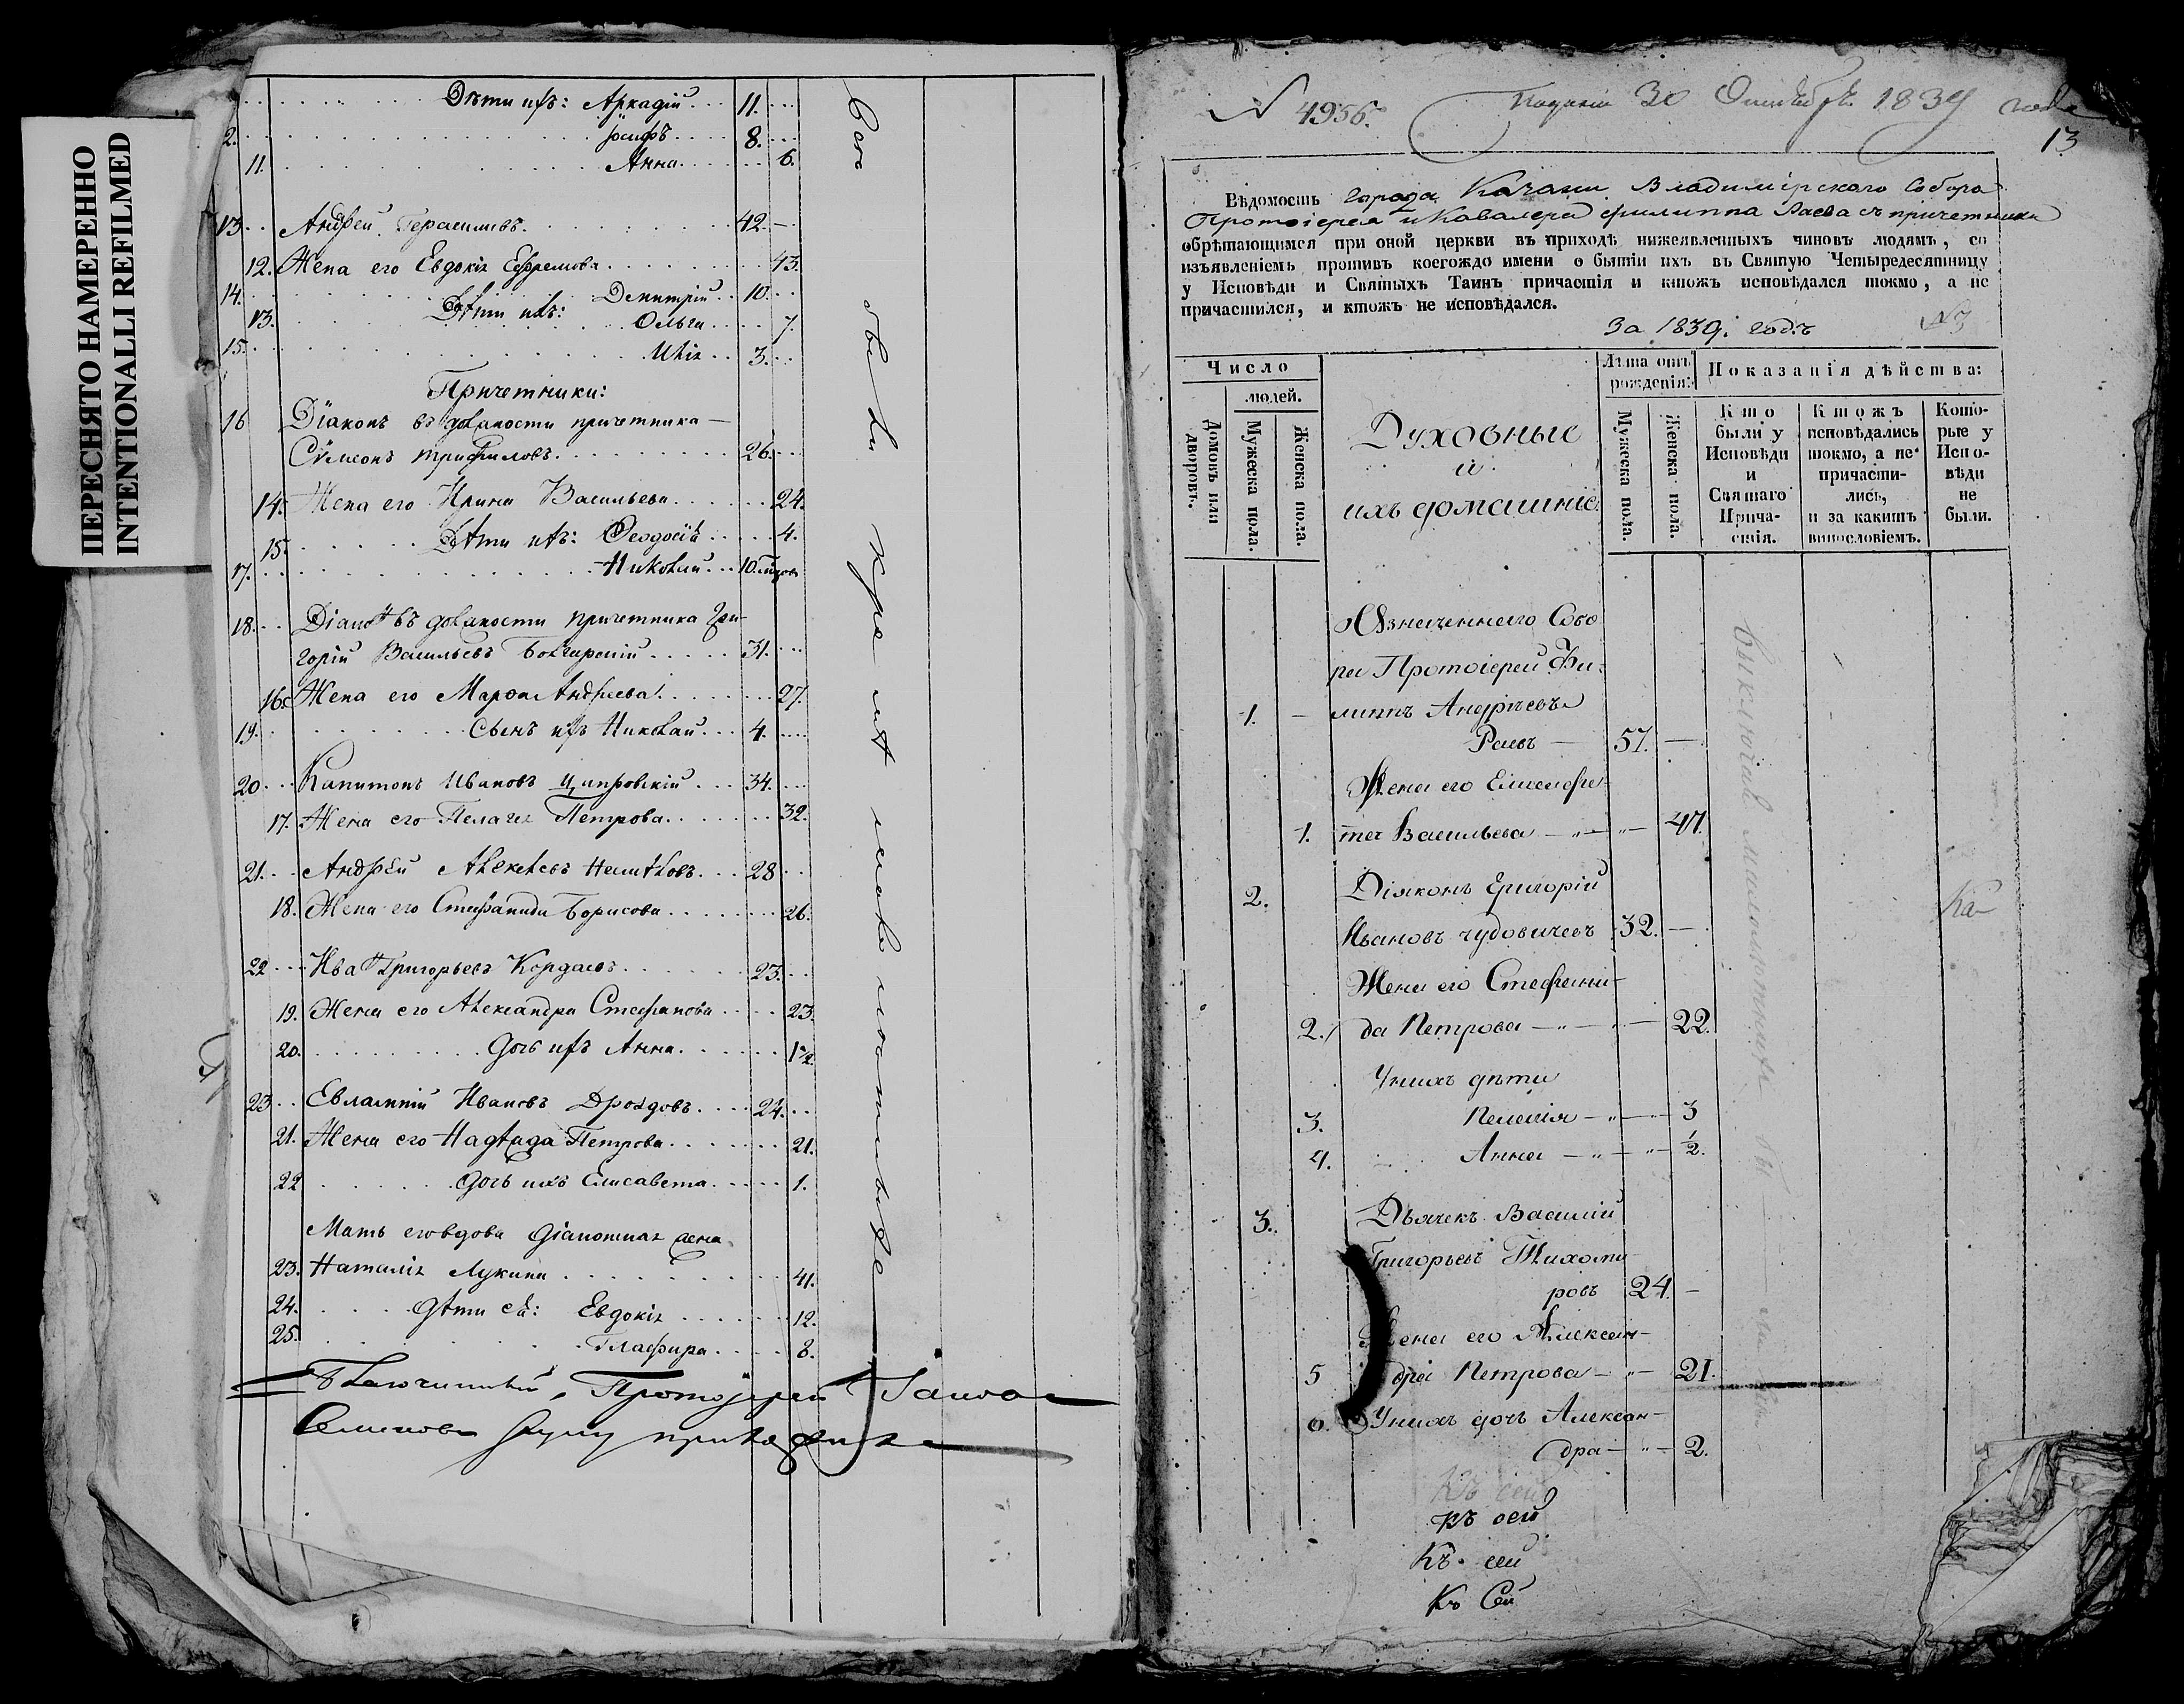 ПЕРЕСНЯТО НАМЕРЕННО
INTENTIONALLI REFILMED
Дѣти ихъ: Аркадій 11.
2. Іосифъ 8.
11. Анна 6.
13. Андрей Герасимовъ 42.
12. Жена его Евдокія Ефремова 43.
14. Дѣти ихъ: Димитрій 10.
13. Ольга 7.
15. Илія 3.
Причетники:
16 Діаконъ въ должности причетника
Сѵмеонъ Трифиловъ 26.
14. Жена его Ирина Васильева 24.
15. Дѣти ихъ: Феодосія 4.
17. Николай 10
18. Діаконъ въ должности причетника Гри-
горій Васильевъ 31.
16. Жена его Марѳа Андреева 27.
19. Сынъ ихъ Николай 4.
20. Капитонъ Ивановъ 34.
17. Жена его Пелагія Петрова 32.
21. Андрей Алексѣевъ 28
18. Жена его Стефанида Борисова 26.
22 Иванъ Григорьевъ 23.
19. Жена его Александра Стефанова 23.
20. Дочь ихъ Анна 1 1/2
23 Евлампій Ивановъ Дроздовъ 24.
21. Жена его Надежда Петрова 21.
22 Дочь ихъ Елисавета 1.
Мать его вдова діаконская жена
23. Наталія Лукина 41.
24. Дѣти ея: Евдокія 12.
25. Глафира 8.
Благочинный, Протоіерей
руку приложилъ
N 4956. 30 1839 года
13
Вѣдомость города Казани Владимірскаго Собора
Протоіерея и Кавалера Филиппа Раева съ причетники
обрѣтающимся при оной церкви въ приходѣ нижеявленныхъ чиновъ людямъ, со
изъявленіемъ противъ коегождо имени о бытіи ихъ въ Святую Четыредесятницу
у Исповѣди и Святыхъ Таинъ причастія и ктожъ исповѣдался токмо, а не
причастился, и ктожъ не исповѣдался.
За 1839. годъ N3
Число
людей.
Домовъ или дворовъ.
Мужеска пола.
Женска пола.
Духовные
и
ихъ домашніе
Лѣта отъ
рожденія:
Мужеска пола.
Женска пола.
Показанія дѣйства:
Кто
были у
Исповѣди
и
Святаго
Прича-
стія.
Ктожъ
исповѣдались
токмо, а не
причасти-
лись,
и за какимъ
винословіемъ.
Кото-
рые у
Испо-
вѣди
не
были.
Означеннаго Собо
ра Протоіерей Фи-
1. липпъ Андреевъ
Раевъ 57.
Жена его Елисаве-
1. та Васильева 47.
2. Діяконъ Григорій
Ивановъ Чудовичевъ 32.
Жена его Стефани-
2. да Петрова 22.
У нихъ дѣти
3. Пелагія 3
4. Анна 1/2.
3. Дьячекъ Василій
Григорьевъ Тихоми-
ровъ 24.
Жена его Алексан-
5 дра Петрова 21.
6. У нихъ дочь Алексан-
дра 2.
Къ сей
Къ сей
Къ сей
Къ Сей